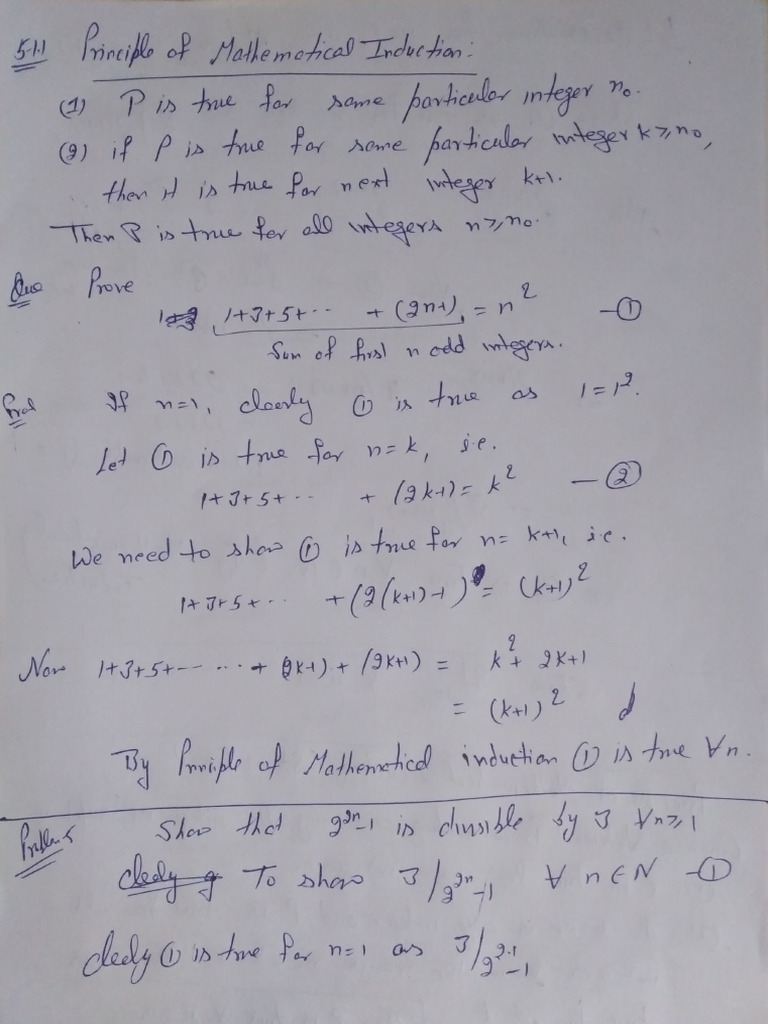 5.1.1 Principle of Mathematical Induction:
(1) P is true for some particular integer n₀.
(2) if P is true for some particular integer k ≥ n₀,
then it is true for next integer k+1.
Then P is true for all integers n ≥ n₀.
Que Prove
1+3+5+... + (2n-1) = n² —①
Sum of first n odd integers.
Proof If n=1, clearly ① is true as 1=1².
Let ① is true for n=k, i.e.
1+3+5+... + (2k-1) = k² —②
We need to show ① is true for n=k+1, i.e.
1+3+5+... + (2(k+1)-1) = (k+1)²
Now 1+3+5+--- ... + (2k-1) + (2k+1) = k² + 2k+1
= (k+1)²
By Principle of Mathematical induction ① is true ∀n.
Problem Show that 2²ⁿ-1 is divisible by 3 ∀n≥1
To show 3/2²ⁿ-1 ∀ n∈N —①
Clearly ① is true for n=1 as 3/2²·¹-1